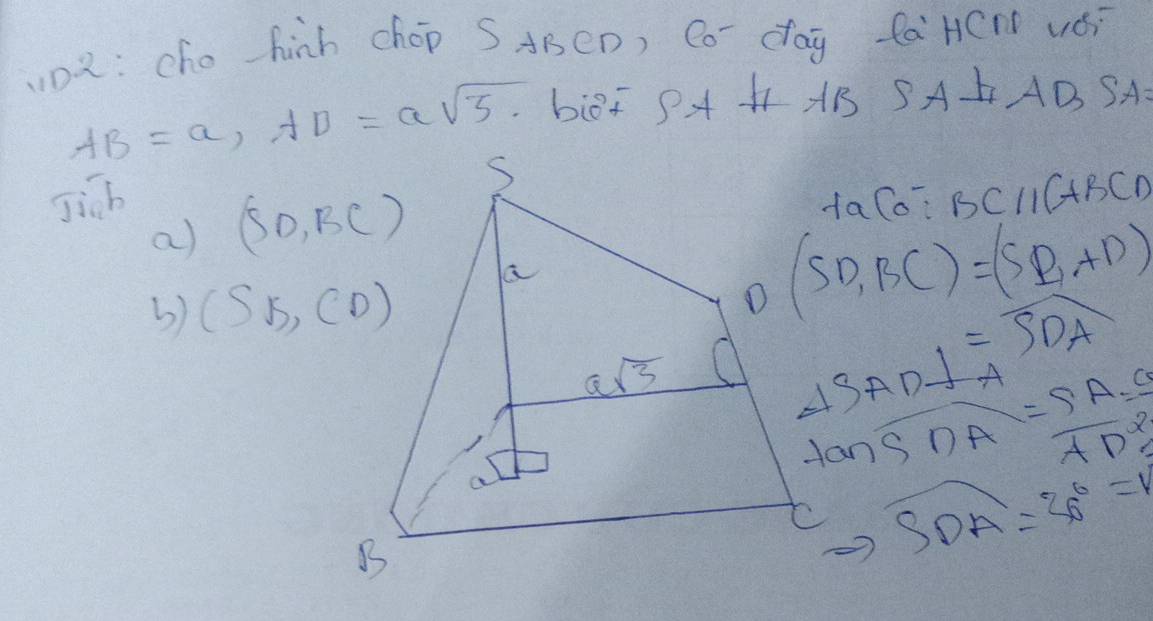 VD2: Cho hình chóp S ABCD, có đáy là HCN với
AB = a, AD = a√3. biết SA ⊥ AB SA ⊥ AD, SA=
Tính
a) (SD, BC)
b) (SB, CD)
S
a
D
a√3
a
B
C
ta có: BC // (ABCD
(SD, BC) = (SD, AD)
= SDA
ΔSAD ⊥ A
tan SDA = SA
AD
=> SDA =